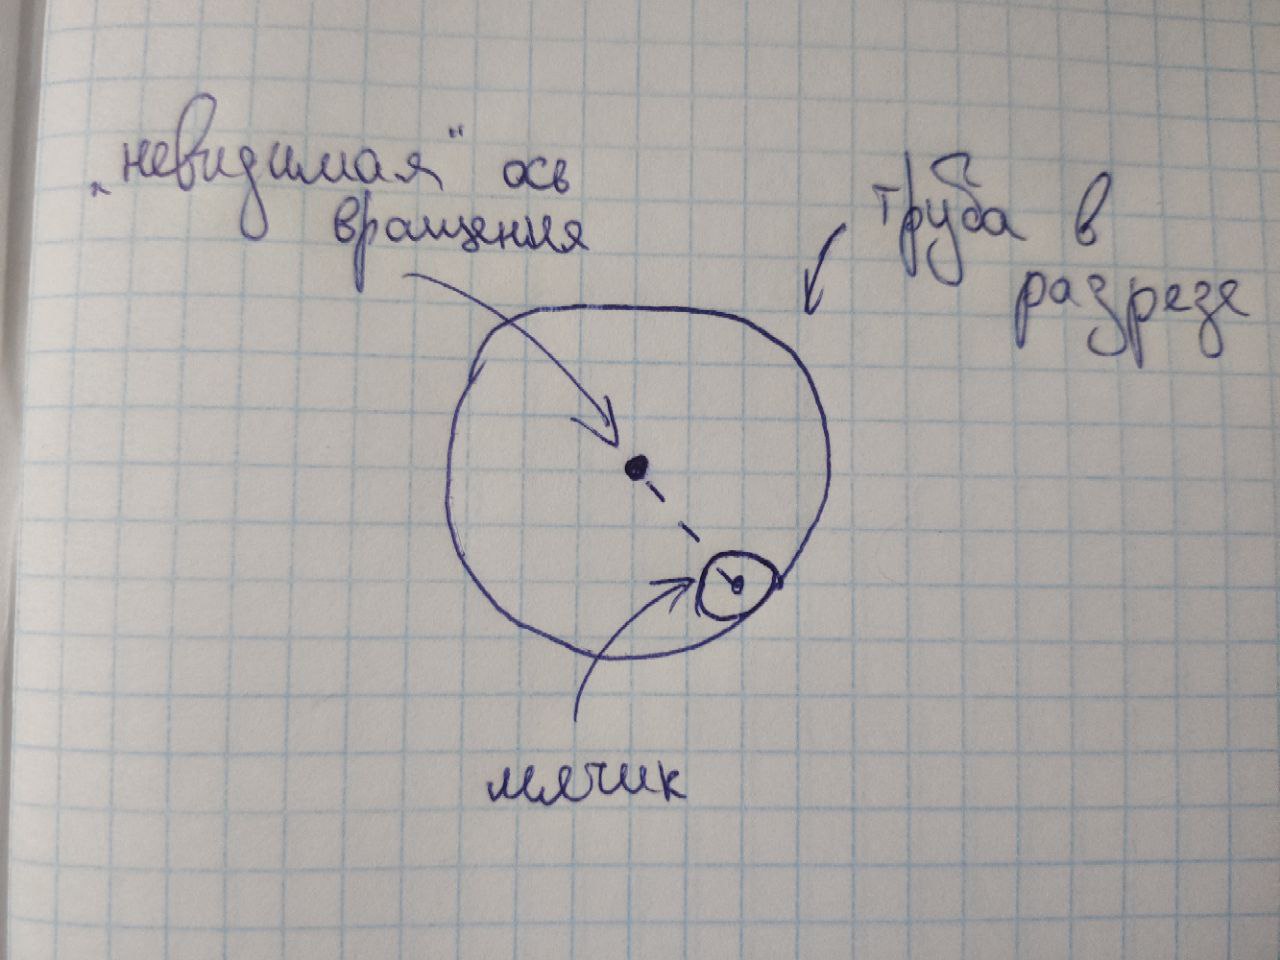 „невидимая“ ось
вращения
труба в
разрезе
мячик